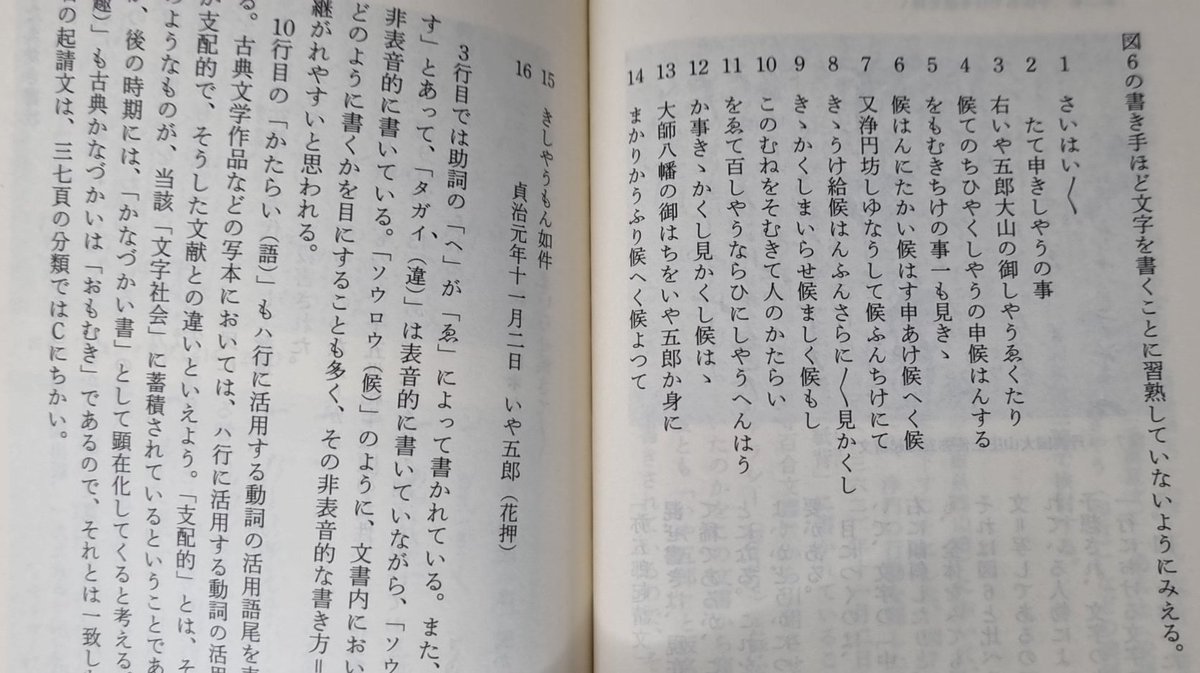 図6の書き手ほど文字を書くことに習熟していないようにみえる。
1 さいはい〳〵
2 たて申きしやうの事
3 右いや五郎大山の御しやうゑくたり
4 候てのちひやくしやうの申候はんする
5 をもむきちけの事一も見きゝ
6 候はんにたかい候はす申あけ候へく候
7 又浄円坊しゆなうして候ふんちけにて
8 きゝうけ給候はんふんさらに〳〵見かくし
9 きゝかくしまいらせ候ましく候もし
10 このむねをそむきて人のかたらい
11 をゑて百しやうならひにしやうへんはう
12 か事きゝかくし見かくし候はゝ
13 大師八幡の御はちをいや五郎か身に
14 まかりかうふり候へく候よつて
15 きしやうもん如件
16 貞治元年十一月二日 いや五郎（花押）
3行目では助詞の「へ」が「ゑ」によって書かれている。また、
す」とあって、「タガイ（違）」は表音的に書いていながら、「ソウ
非表音的に書いている。「ソウロウ（候）」のように、文書内におい
どのように書くかを目にすることも多く、その非表音的な書き方＝
継がれやすいと思われる。
10行目の「かたらい（語）」もハ行に活用する動詞の活用語尾を
る。古典文学作品などの写本においては、ハ行に活用する動詞の活用
が支配的で、そうした文献との違いといえよう。「支配的」とは、そ
のようなものが、当該「文字社会」に蓄積されているということであ
、後の時期には、「かなづかい書」として顕在化してくると考える。
趣）」も古典かなづかいは「おもむき」であるので、それとは一致し
の起請文は、三七頁の分類ではCにちかい。